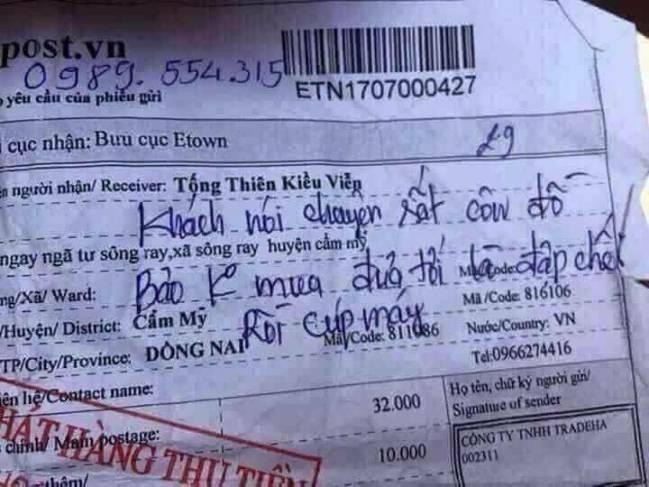 post.vn
0989.554.315
ETN1707000427
yêu cầu của phiếu gửi
cục nhận: Bưu cục Etown
người nhận/ Receiver: Tống Thiên Kiều Viễn
Khách nói chuyện rất côn đồ
ngay ngã tư sông ray,xã sông ray huyện cẩm mỹ
Bảo K mua đưa tới là đập chết
Ward:
Mã /Code: 816106
Rồi cúp máy
Huyện/ District: Cẩm Mỹ
Mã/Code: 811086
Nước/Country: VN
TP/City/Province: ĐỒNG NAI
Tel:0966274416
hệ/Contact name:
32.000
Họ tên, chữ ký người gửi/
Signature of sender
PHÁT HÀNG THU TIỀN
chính/ Main postage:
10.000
CÔNG TY TNHH TRADEHA
002311
thêm/